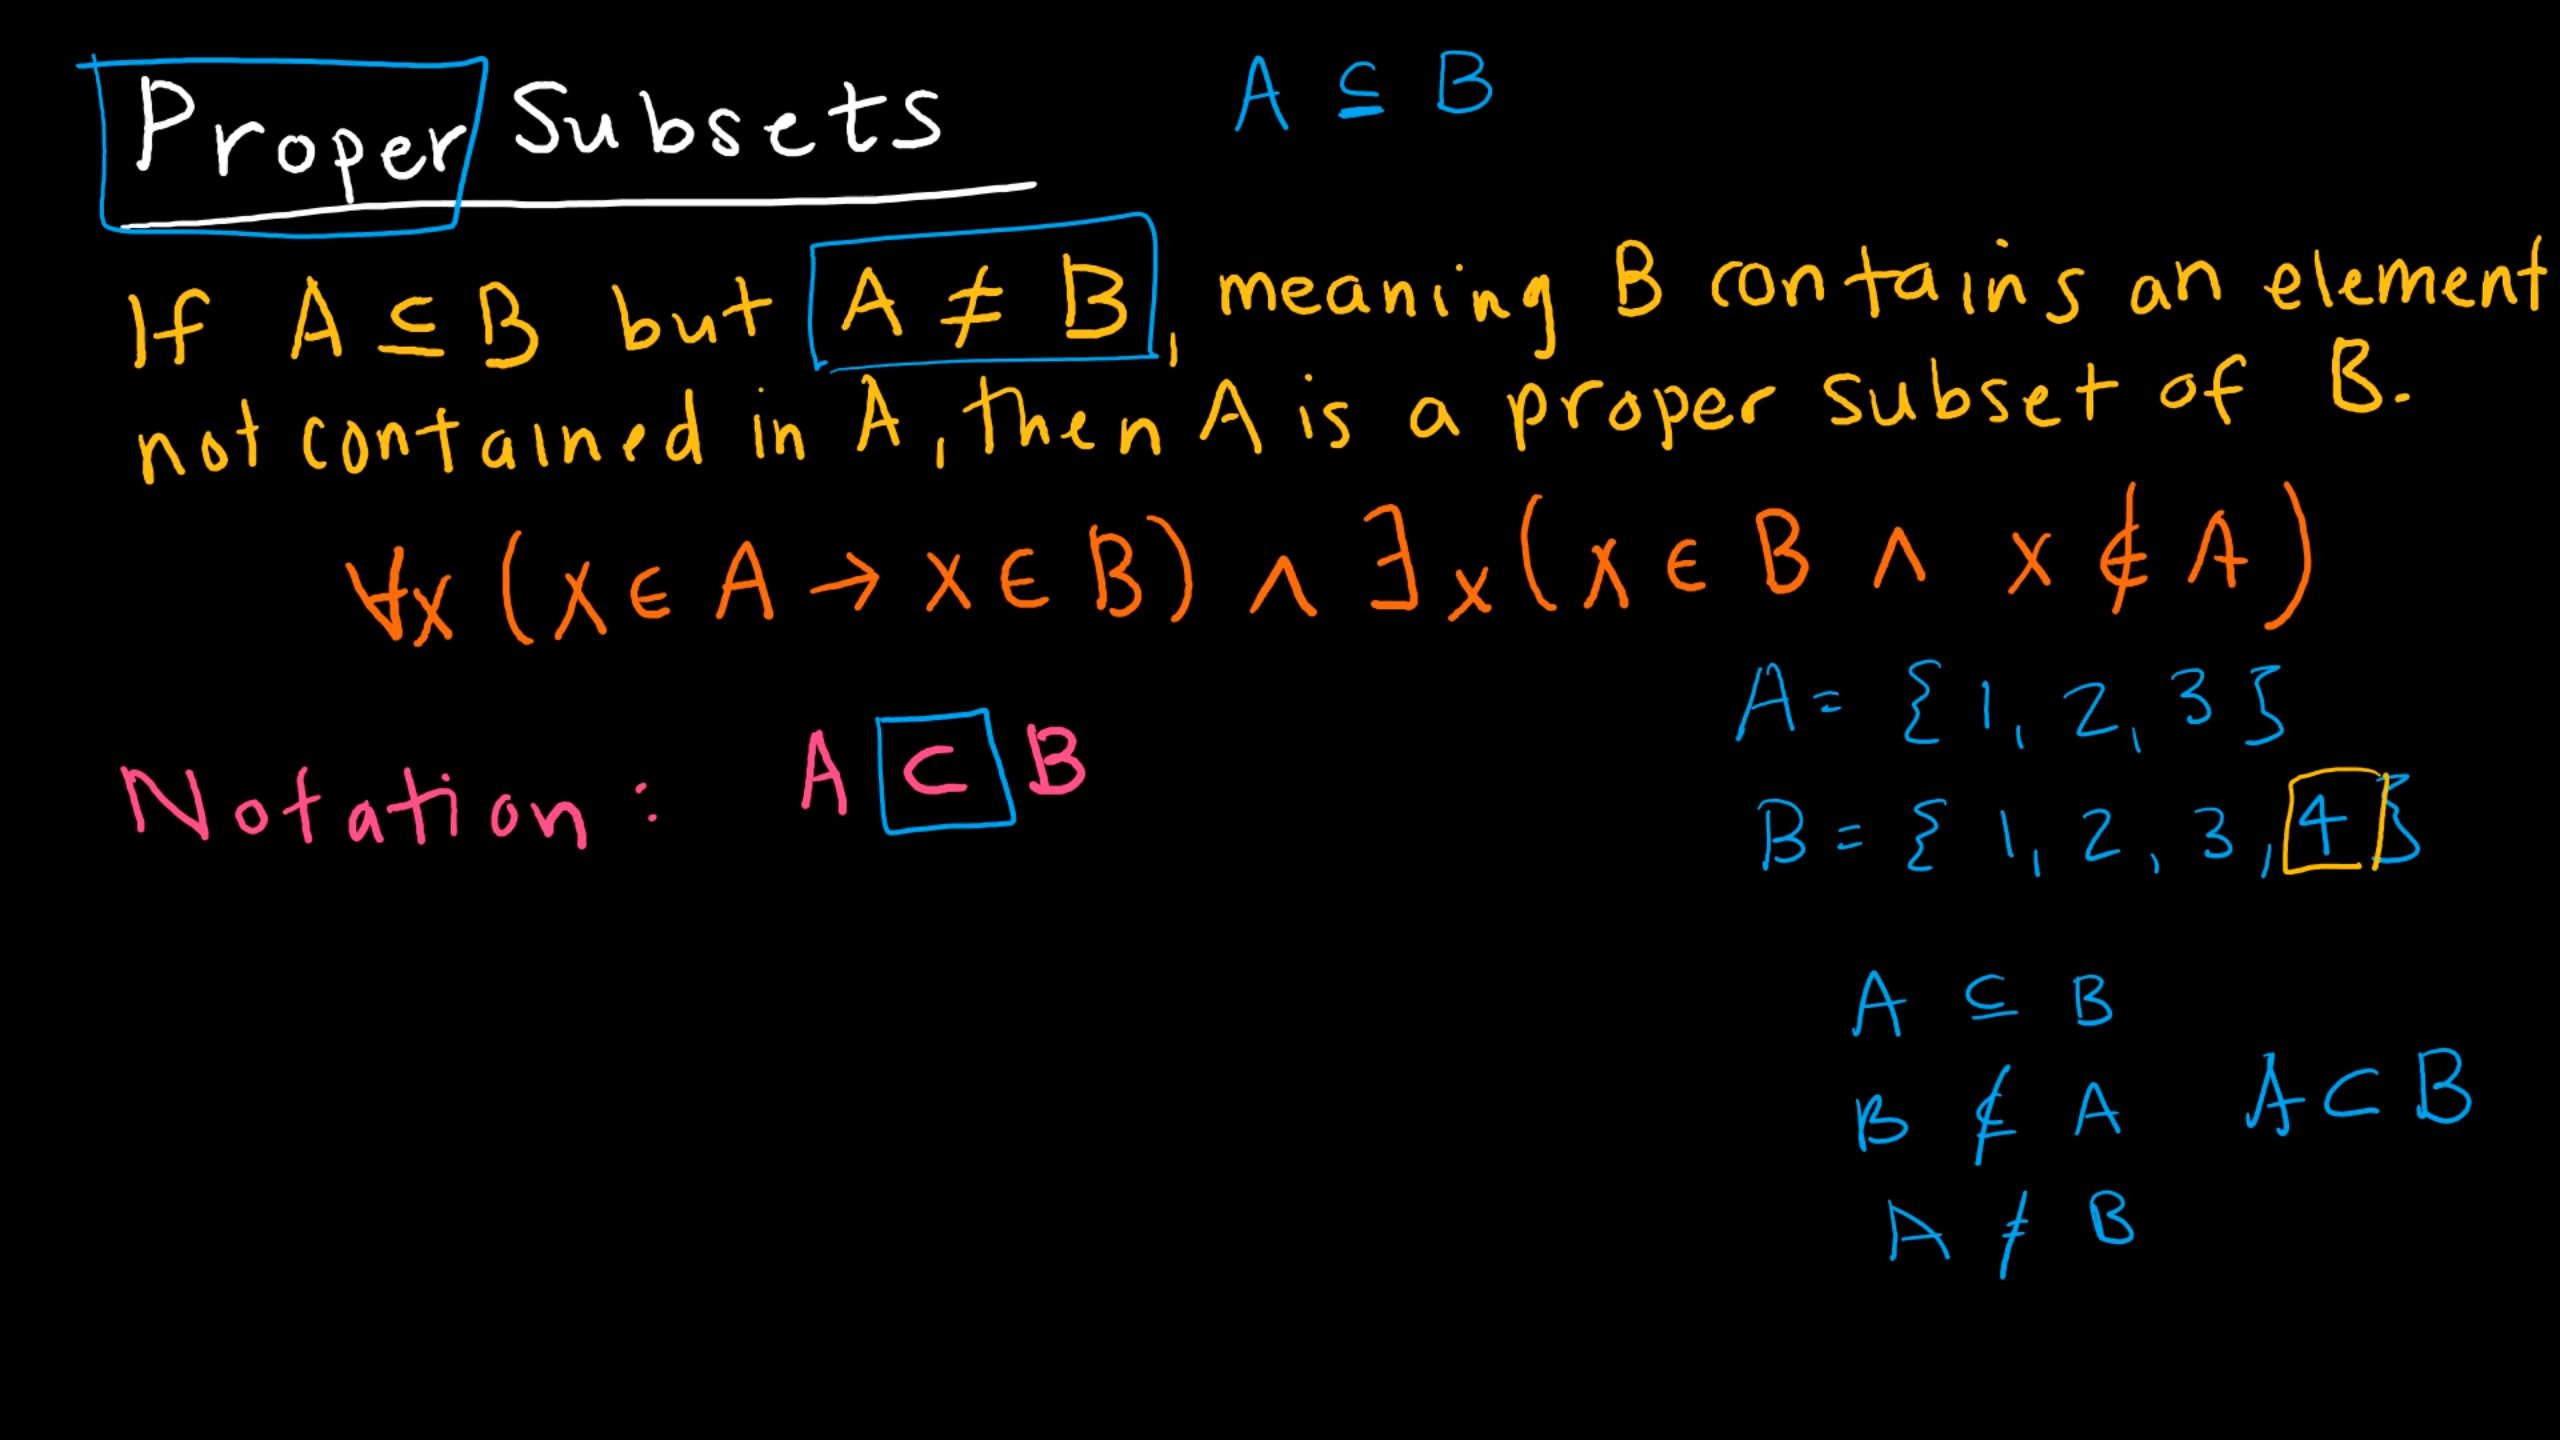 Proper Subsets
A ⊆ B
If A ⊆ B but A ≠ B, meaning B contains an element
not contained in A, then A is a proper subset of B.
∀x (x ∈ A → x ∈ B) ∧ ∃x (x ∈ B ∧ x ∉ A)
Notation: A ⊂ B
A = {1, 2, 3}
B = {1, 2, 3, 4}
A ⊆ B
B ⊈ A
A ⊂ B
A ≠ B